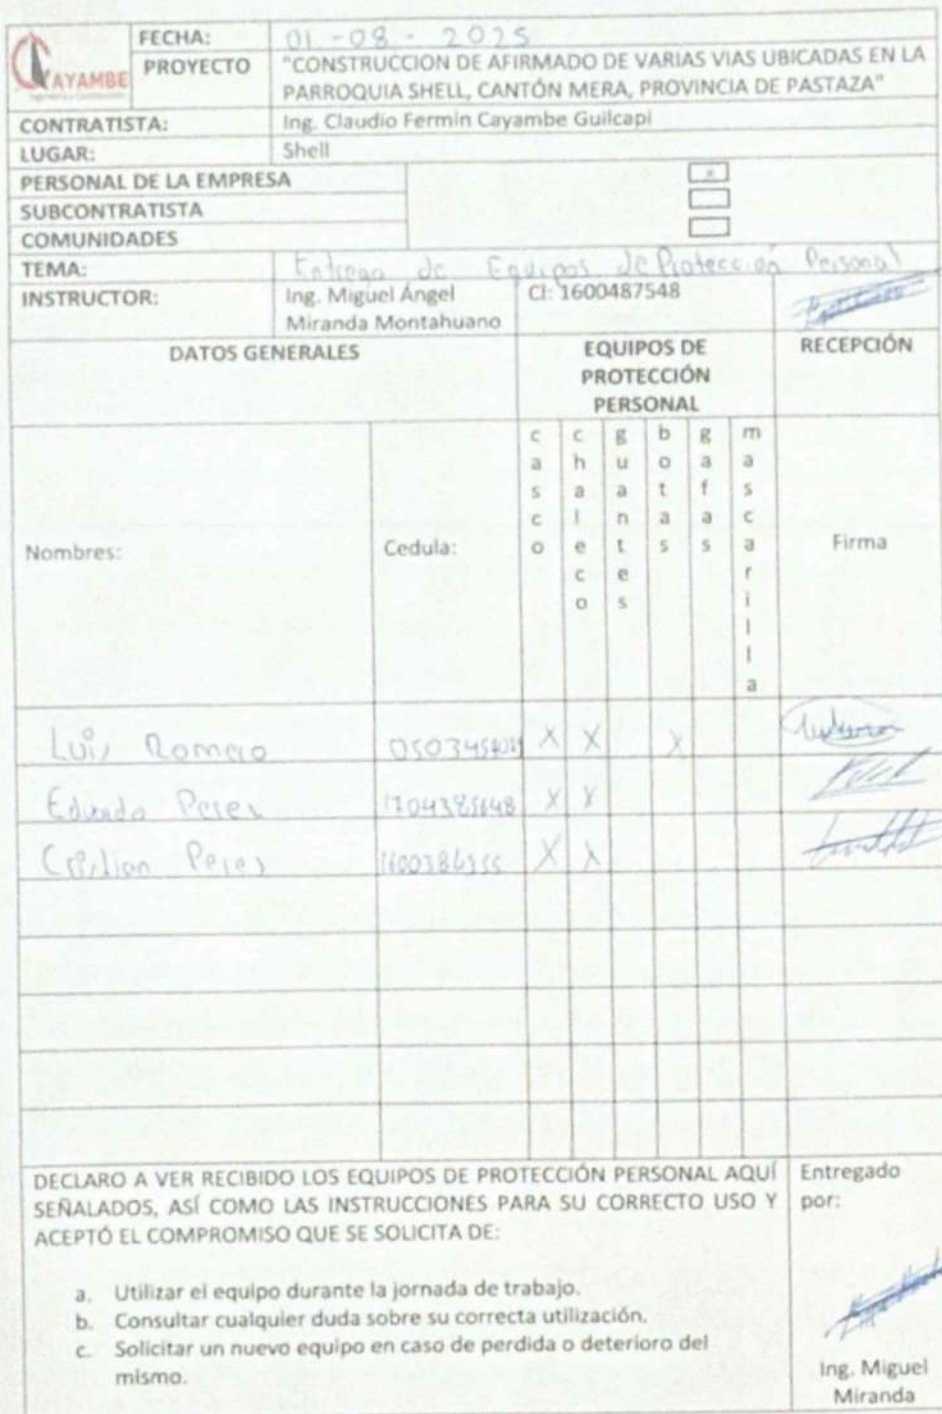 CAYAMBE
FECHA: 01-08-2025
PROYECTO "CONSTRUCCION DE AFIRMADO DE VARIAS VIAS UBICADAS EN LA
PARROQUIA SHELL, CANTÓN MERA, PROVINCIA DE PASTAZA"
CONTRATISTA: Ing. Claudio Fermin Cayambe Guilcapi
LUGAR: Shell
PERSONAL DE LA EMPRESA x
SUBCONTRATISTA
COMUNIDADES
TEMA: Entrega de Equipos de Protección Personal
INSTRUCTOR: Ing. Miguel Ángel
Miranda Montahuano
CI: 1600487548
DATOS GENERALES
EQUIPOS DE
PROTECCIÓN
PERSONAL
RECEPCIÓN
Nombres:
Cedula:
casco
chaleco
guantes
botas
gafas
mascarilla
Firma
Luis Romero X X X
Eduardo Perez X X
Cristian Perez X X
DECLARO A VER RECIBIDO LOS EQUIPOS DE PROTECCIÓN PERSONAL AQUÍ
SEÑALADOS, ASÍ COMO LAS INSTRUCCIONES PARA SU CORRECTO USO Y
ACEPTÓ EL COMPROMISO QUE SE SOLICITA DE:
a. Utilizar el equipo durante la jornada de trabajo.
b. Consultar cualquier duda sobre su correcta utilización.
c. Solicitar un nuevo equipo en caso de perdida o deterioro del
mismo.
Entregado
por:
Ing. Miguel
Miranda